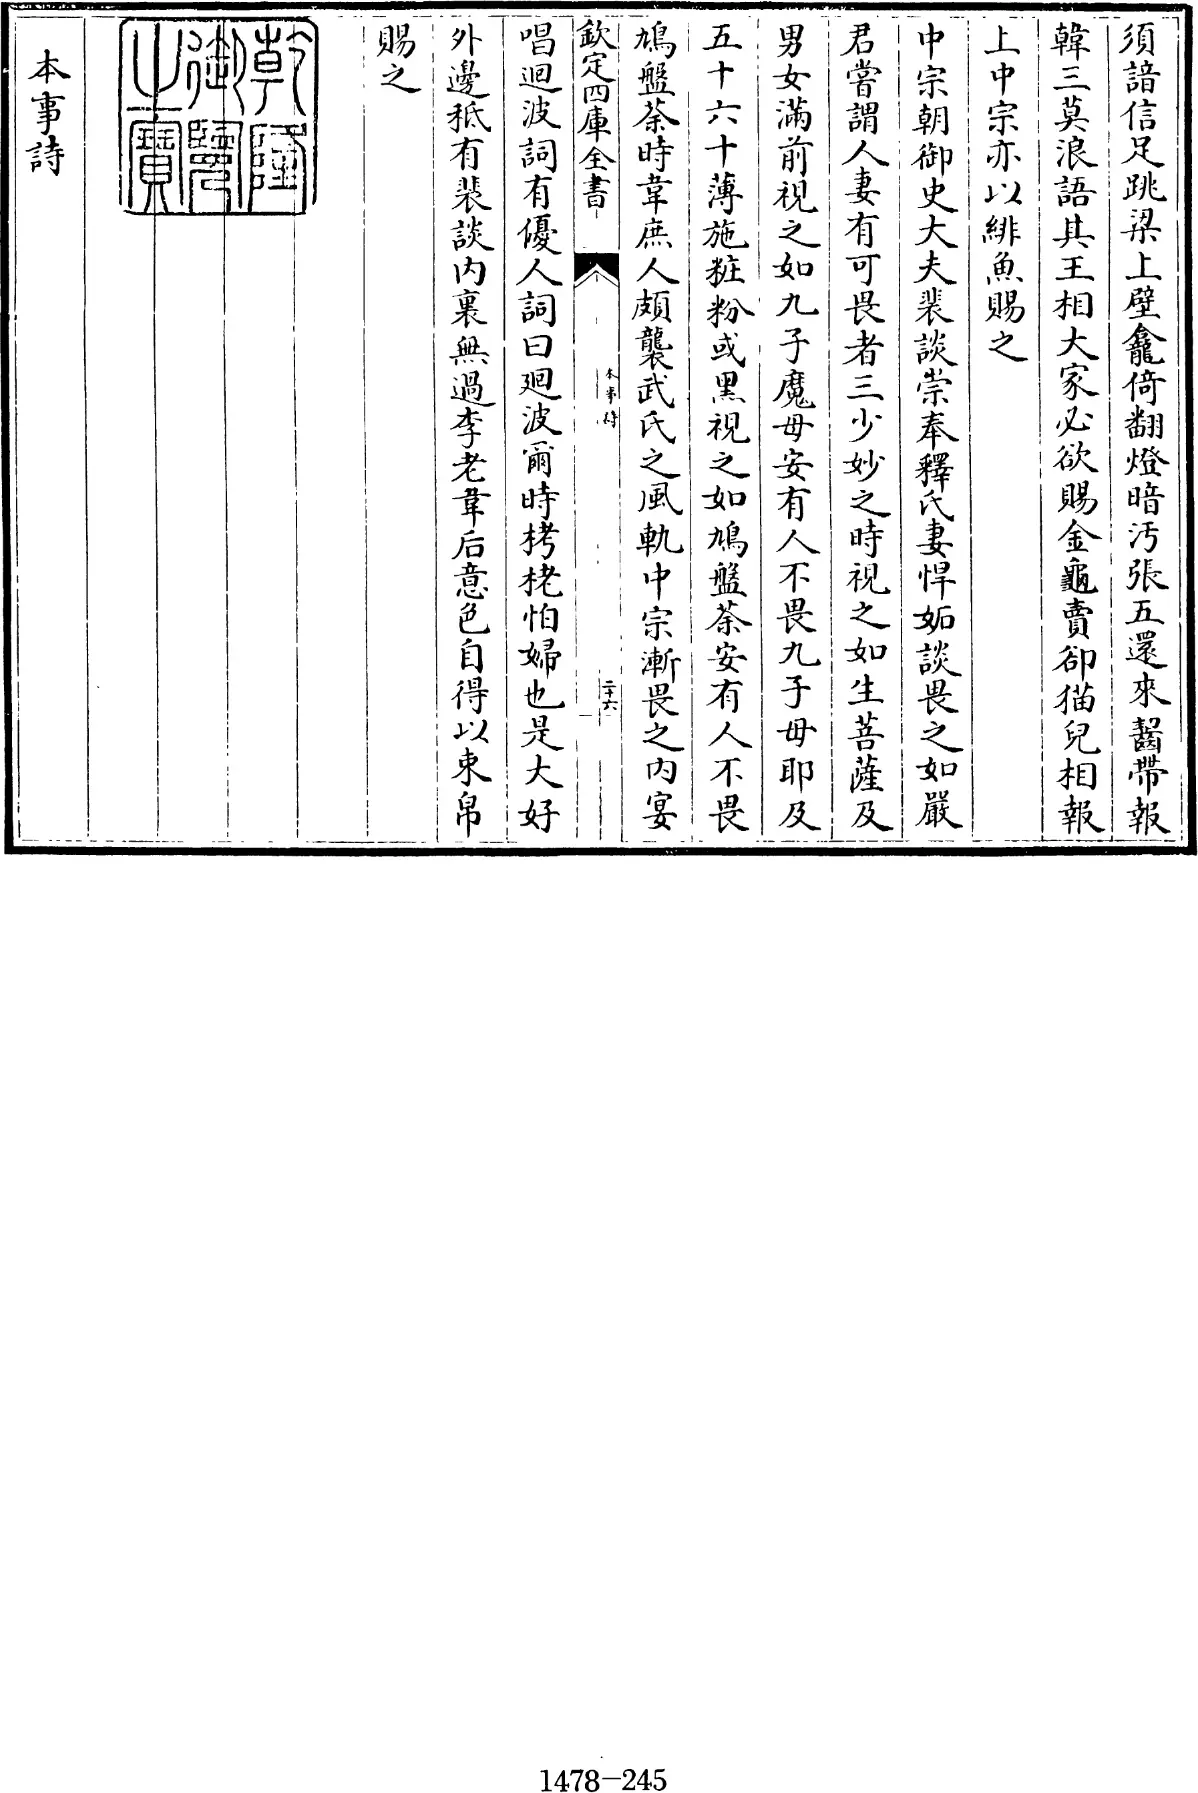 須諳信足跳梁上壁龕倚翻燈暗汚張五還來齧帶報
韓三莫浪語其王相大家必欲賜金龜賣卻猫兒相報
上中宗亦以緋魚賜之
中宗朝御史大夫裴談崇奉釋氏妻悍妬談畏之如嚴
君嘗謂人妻有可畏者三少妙之時視之如生菩薩及
男女滿前視之如九子魔母安有人不畏九子母耶及
五十六十薄施粧粉或黑視之如鳩盤荼安有人不畏
鳩盤荼時韋庶人頗襲武氏之風軌中宗漸畏之内宴
欽定四庫全書
本事詩
二十六
唱迴波詞有優人詞曰廻波爾時栲栳怕婦也是大好
外邊秪有裴談内裏無過李老韋后意色自得以束帛
賜之
乾隆御覽之寶
本事詩
1478-245